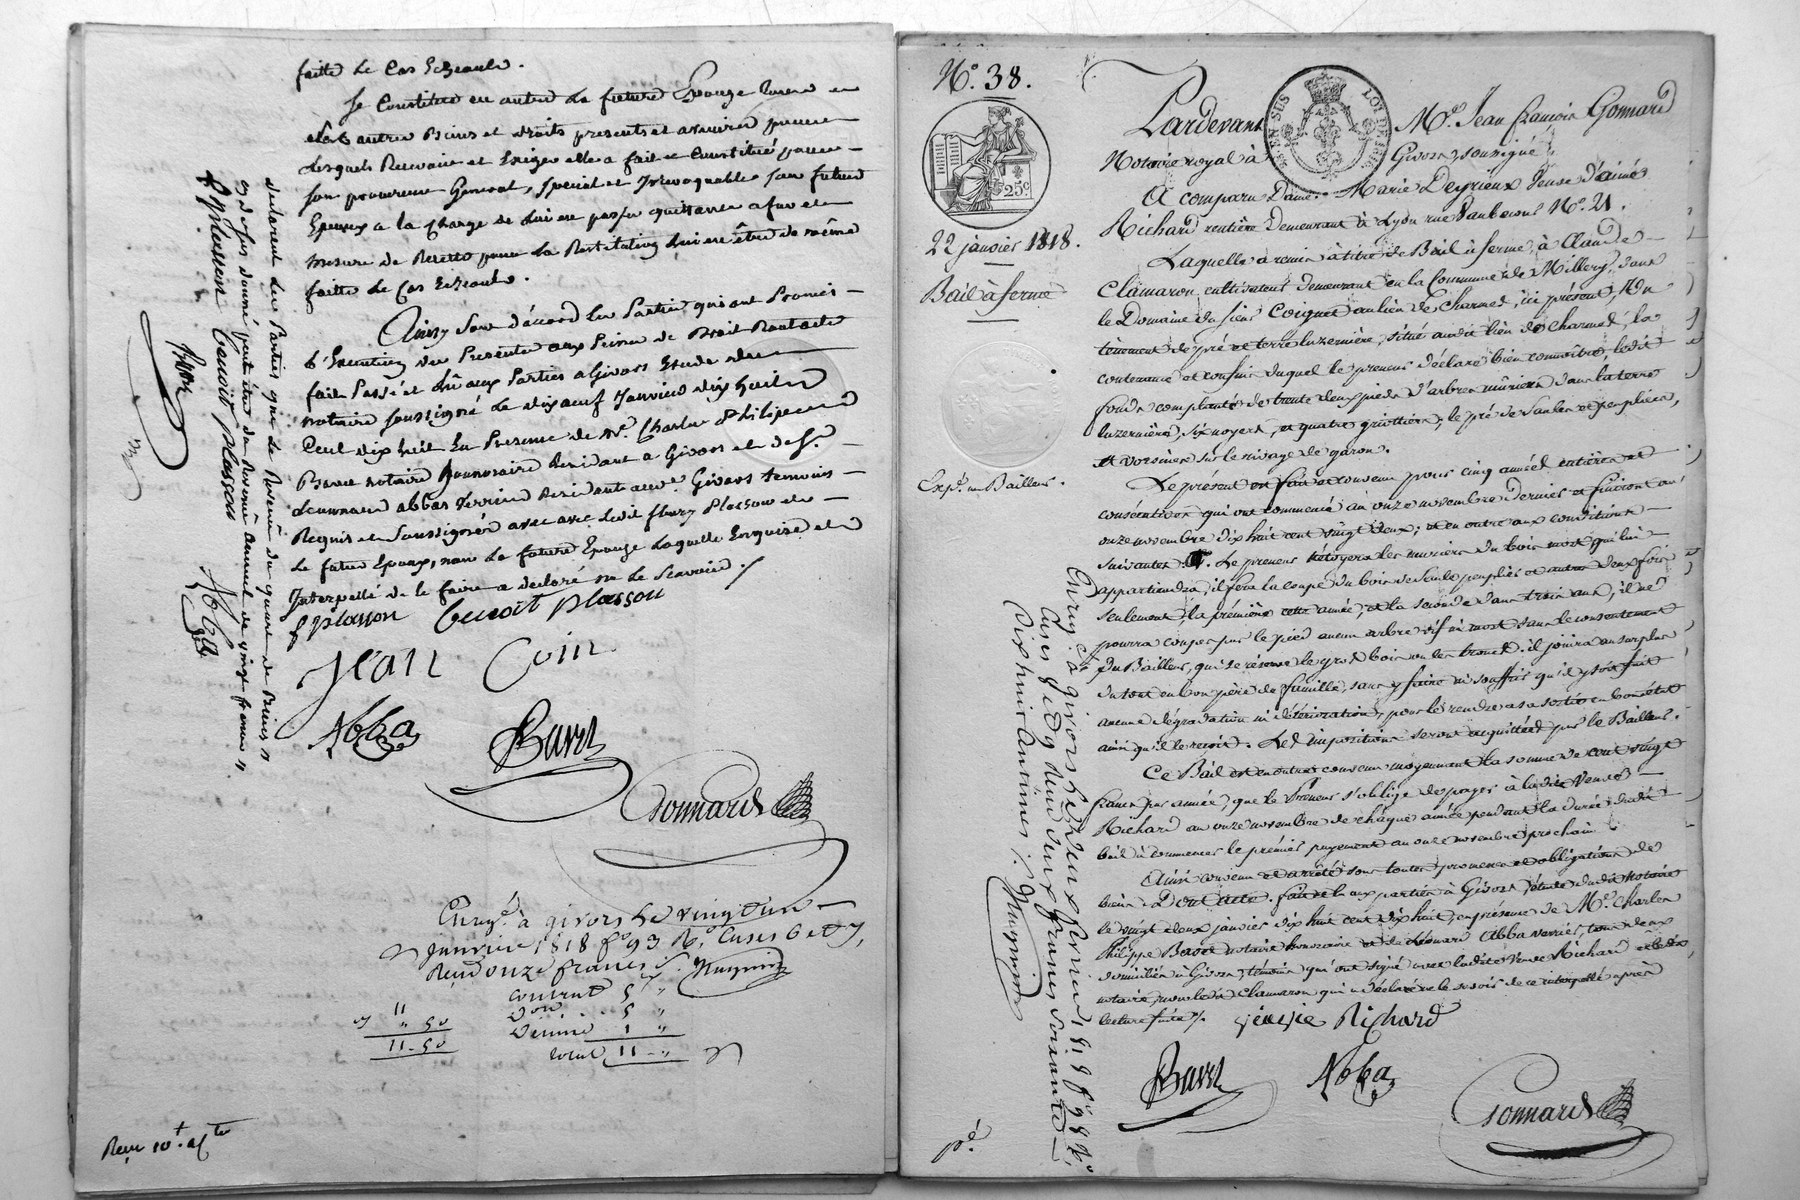 faitte le Cas Echeant.
Se Constitue en outre La future Epouze
autres Biens et droits presents et avenir pour
lesquels Recevoir et Exiger elle a fait et Constitué pour
son procureur General, special et Irrevocable son futur
Epoux a la Charge de
mesure de Recette pour la Restitution être de même
faitte le Cas Echeant.
Ainsy sont d'accord Les Parties qui ont Promis
l'Execution des Presentes aux Peines de Droit
fait Passé et Lû aux Parties a Givors Etude du
notaire soussigné Le dix neuf Janvier dix huit
Cent dix huit En Presence de Mr. Charles Philippe
Bavet notaire honnoraire Residant a Givors et de Sr.
Leonnard abba Verrier Residant aud. Givors temoins
Requis et Soussignés avec Ledit fleury Plasson et
Le futur Epoux, non La future Epouze Laquelle Enquise et
Interpellé de le faire a declaré ne le Scavoir ./
f Plasson Benoit plasson
Jean Coin
Abba Bavet
Gonnard
Declarent les Parties que Le Revenu du quart des Biens
cy dessus donné peut être du Revenu annuel de vingt francs
f plasson Benoit plasson
Abba
Enregé. à Givors le vingt un
janvier 1818 fo. 93 Ro. Cases 6 et 7,
Reçu onze francs
contrat 5 "
Don 5 "
Décime 1 "
total 11 - "
11 "
" 50
11 - 50
Reçu 10
No. 38.
25c
22 janvier 1818.
Bail à ferme
Expé. au Bailleur.
Pardevant Me. Jean françois Gonnard
Notaire royal à Givors, soussigné
A comparu Dame Marie Deyrieux Veuve d'aimé
Richard rentière Demeurant à Lyon rue Vaubecour No. 21.
Laquelle a remis à titre de Bail à ferme, à Claude
Clamaron cultivateur demeurant en la Commune de Millery, dans
le Domaine du sieur Coignet au lieu de Charmel, ici présent, Un
tènement de pré et terre luzernière, situé audit lieu de Charmel, la
contenance et confins duquel le preneur déclare bien connoître, ledit
fonds complanté de trente deux pieds d'arbres mûriers dans la terre
luzernière, six noyers, et quatre griottiers; le pré de Saules et peupliers,
et vorsines sur le rivage de garon.
Le présent est fait et convenu pour cinq années entières et
consécutives qui ont commencé au onze novembre dernier et finiront au
onze novembre dix huit cent vingt deux; et en outre aux conditions
suivantes. Le preneur nétoyera les muriers du bois mort qui lui
appartiendra, il fera la coupe du bois de Saule peuplier et autres deux fois
seulement, la première cette année, et la seconde dans trois ans, il ne
pourra couper par le pied aucun arbre vif ni mort sans le consentement
du Bailleur, qui se réserve le gros bois ou les troncs. il jouira au surplus
du tout en bon père de famille, sans y faire ni souffrir qu'il y soit fait
aucune dégradation ni détérioration, pour le rendre à sa sortie en bon état
ainsi qu'il le reçoit. Les impositions seront acquittées par le Bailleur.
Ce Bail est en outre convenu moyennant la somme de cent vingt
francs par année, que le Preneur s'oblige de payer à ladite Veuve
Richard au onze novembre de chaque année pendant la durée dudit
bail à commencer le premier payement au onze novembre prochain
Ainsi convenu et arrêté sous toutes promesses et obligations de
biens. Dont acte. fait et lu aux parties à Givors, étude dudit notaire
le vingt deux janvier dix huit cent dix huit, en présence de Me. Charles
Philippe Bavet notaire honoraire et de Léonard Abba verrier, tous deux
domiciliés à Givors, témoins qui ont signé avec ladite Veuve Richard et ledit
notaire, non led. Clamaron qui a déclaré ne le savoir de ce interpellé après
lecture faite ./.
veuve Richard
Bavet Abba
Gonnard
Enregé. à Givors le deux fevrier 1818 fo. 98 Vo.
Cases 7e. & 9 deux francs soixante
dix huit centimes